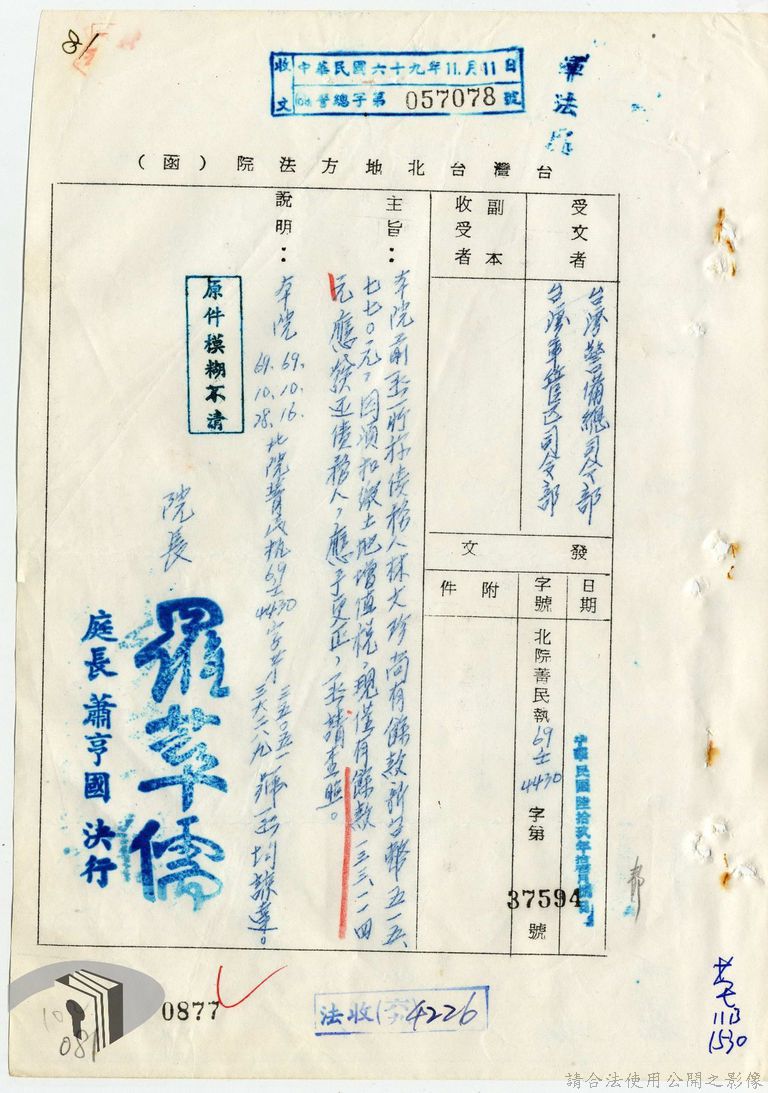 81
收文 中華民國六十九年11.月11日
警總字第 057078 號
軍法
台灣台北地方法院（函）
受文者
台灣警備總司令部
台灣軍管區司令部
副本收受者
發文
日期
字號 北院菁民執69壬4430字第37594號
附件
主旨：
本院前函所稱債務人林文珍尚有餘款新台幣五一五、
七七〇元，因須扣繳土地增值稅，現僅有餘款一三三、一一四
元應發還債務人，應予更正，函請查照。
說明：
本院
69.10.16.
69.10.28.
北院菁民執69壬4430字第
三五〇五一
三六六二九
號函均諒達。
原件模糊不清
院長
羅萃儒
庭長 蕭亨國 決行
0877
法收(69)4226
081
11/3
1530
請合法使用公開之影像